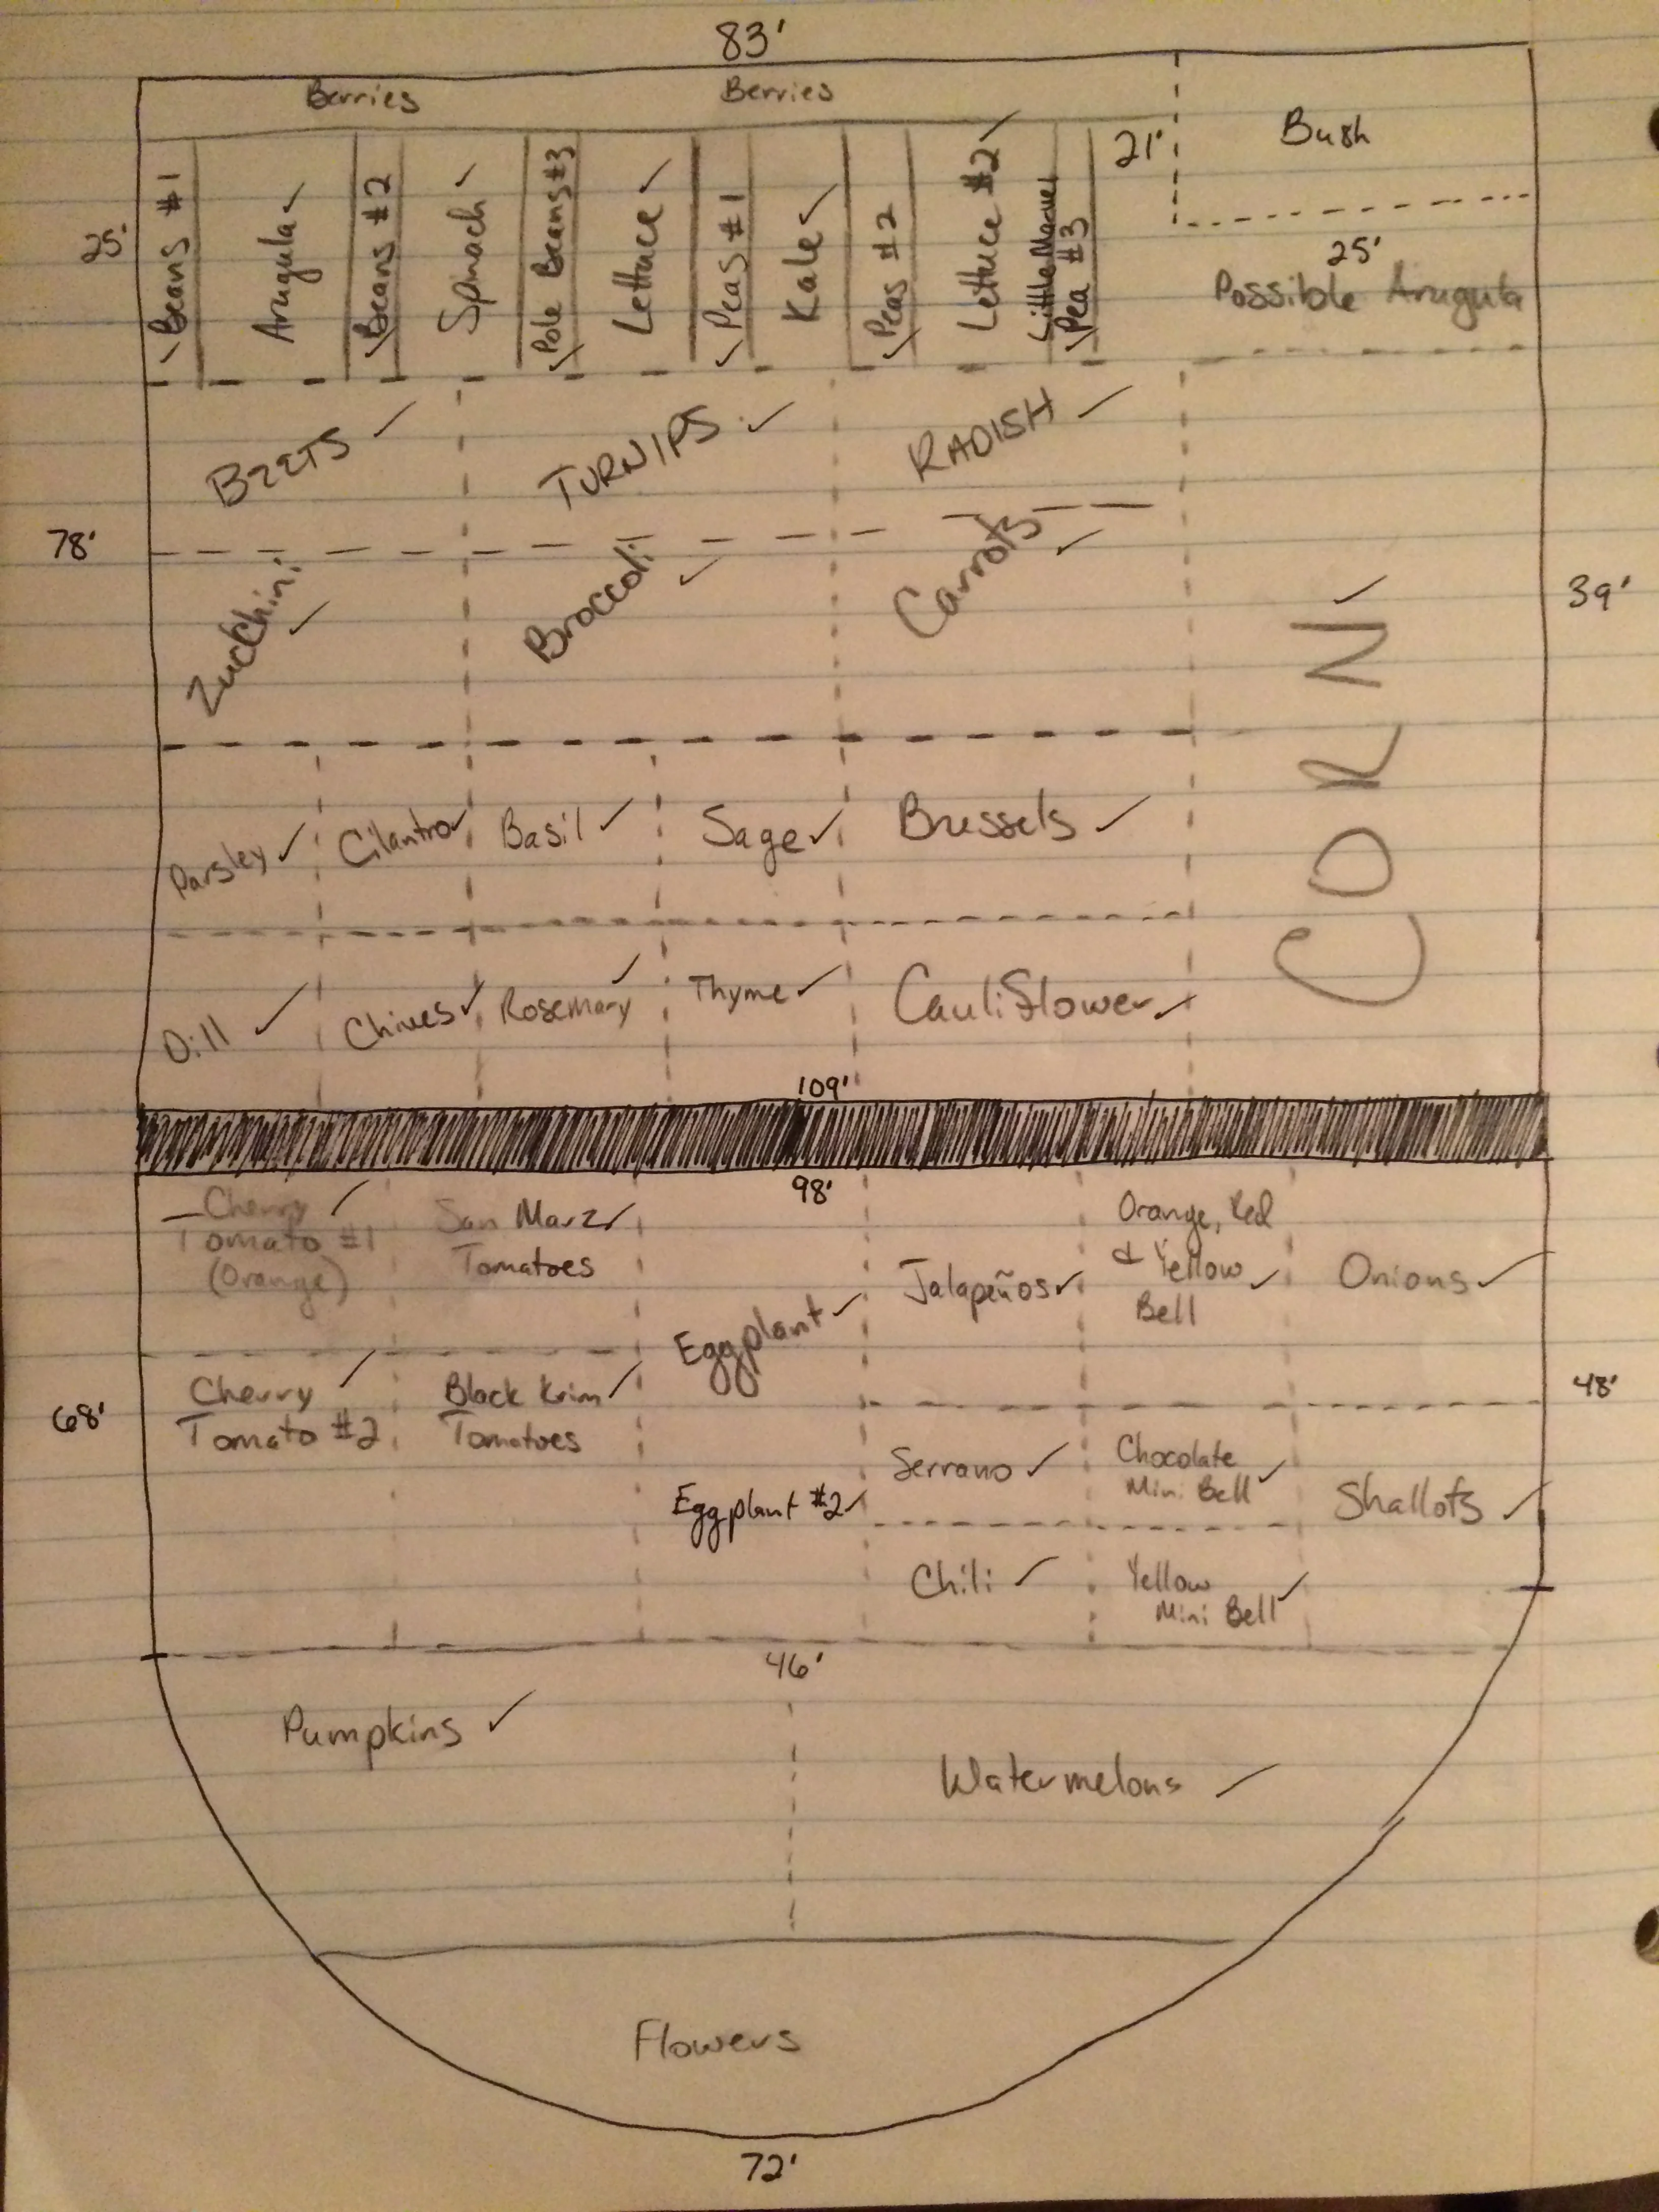 83'
Berries
Berries
Bush
21'
25'
Beans #1
Arugula ✓
Beans #2
Spinach ✓
Pole Beans #3
Lettuce ✓
Peas #1
Kale ✓
Peas #2
Lettuce #2 ✓
Little Marvel
Pea #3
25'
Possible Arugula
BEETS ✓
TURNIPS ✓
RADISH ✓
78'
39'
Zucchini ✓
Broccoli ✓
Carrots ✓
CORN ✓
Parsley ✓
Cilantro ✓
Basil ✓
Sage ✓
Brussels ✓
Dill ✓
Chives ✓
Rosemary ✓
Thyme ✓
Cauliflower ✓
109'
98'
Cherry ✓
Tomato #1
(Orange)
San Marz ✓
Tomatoes
Eggplant ✓
Jalapeños ✓
Orange, Red
& Yellow ✓
Bell
Onions ✓
68'
48'
Cherry ✓
Tomato #2
Black Krim ✓
Tomatoes
Eggplant #2 ✓
Serrano ✓
Chocolate
Mini Bell ✓
Shallots ✓
Chili ✓
Yellow
Mini Bell ✓
46'
Pumpkins ✓
Watermelons ✓
Flowers
72'